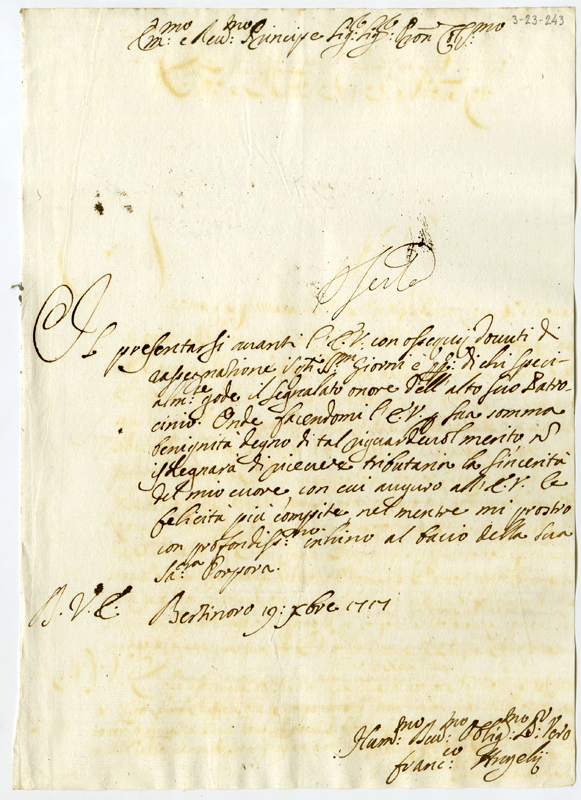 3-23-243
Em.mo e Rev.mo Principe Sig.r Sig.r Pron Col.mo
Il presentarsi avanti l'E.V. con ossequij dovuti di
rassegnazione i sti S.mi Giorni è di chi speci-
alm.te gode il segnalato onore dell'alto suo Patro-
cinio. Onde facendomi l'E.V. sua somma
benignità degno di tal riguardevol merito, n
isdegnarà di ricevere tributaria la sincerità
del mio cuore, con cui auguro all'E.V. le
felicità più compite nel mentre mi prostro
con profondiss.mo inchino al bacio della sua
Sa.cra Porpora.
B. V. E. Bertinoro 19: Xbre 1717
Hum.mo Dev.mo Oblig.mo S.re Vero
Franc.co Angelij